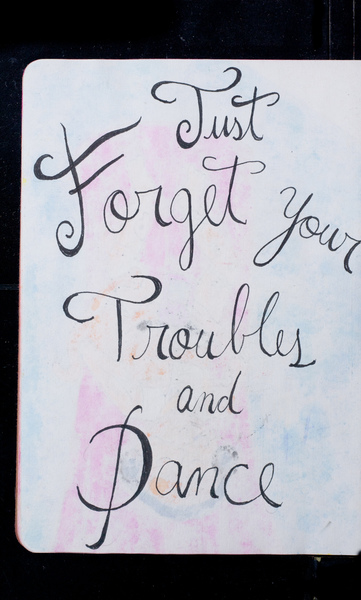 Just
Forget Your
Troubles
and
Dance